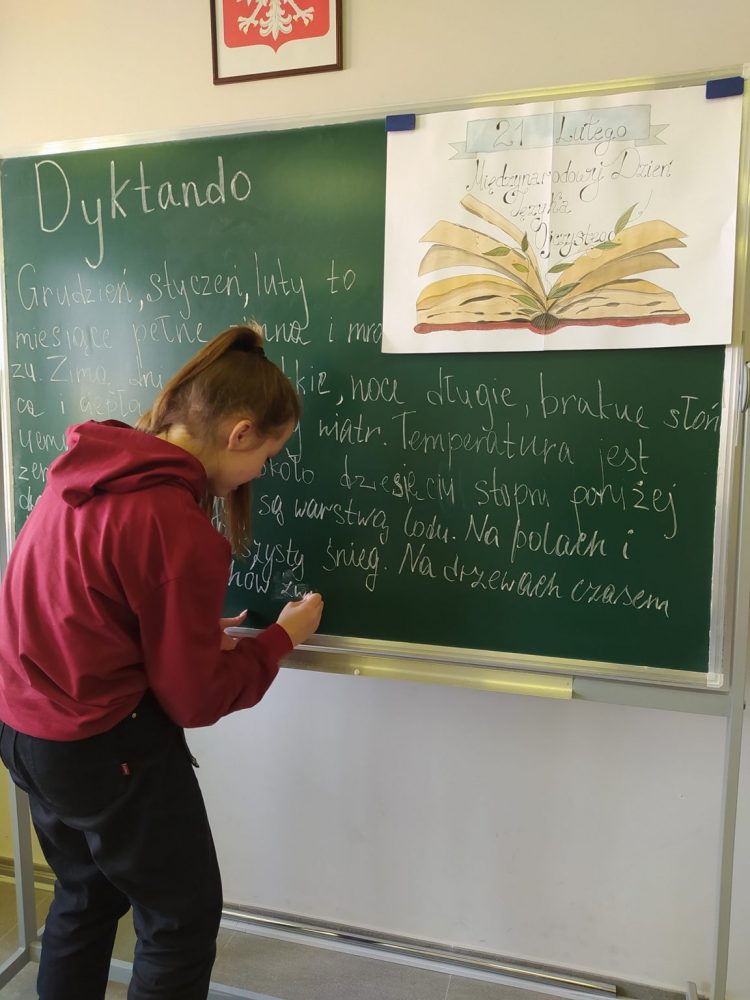 Dyktando
21 Lutego
Międzynarodowy Dzień
Języka
Ojczystego
Grudzień, styczeń, luty to
miesiące pełne zimna i mro
zu. Zimą dni kie, noce długie, brakuje słoń
ca i ciepła wiatr. Temperatura jest
około dziesięciu stopni poniżej
są warstwą lodu. Na polach i
śnieg. Na drzewach czasem